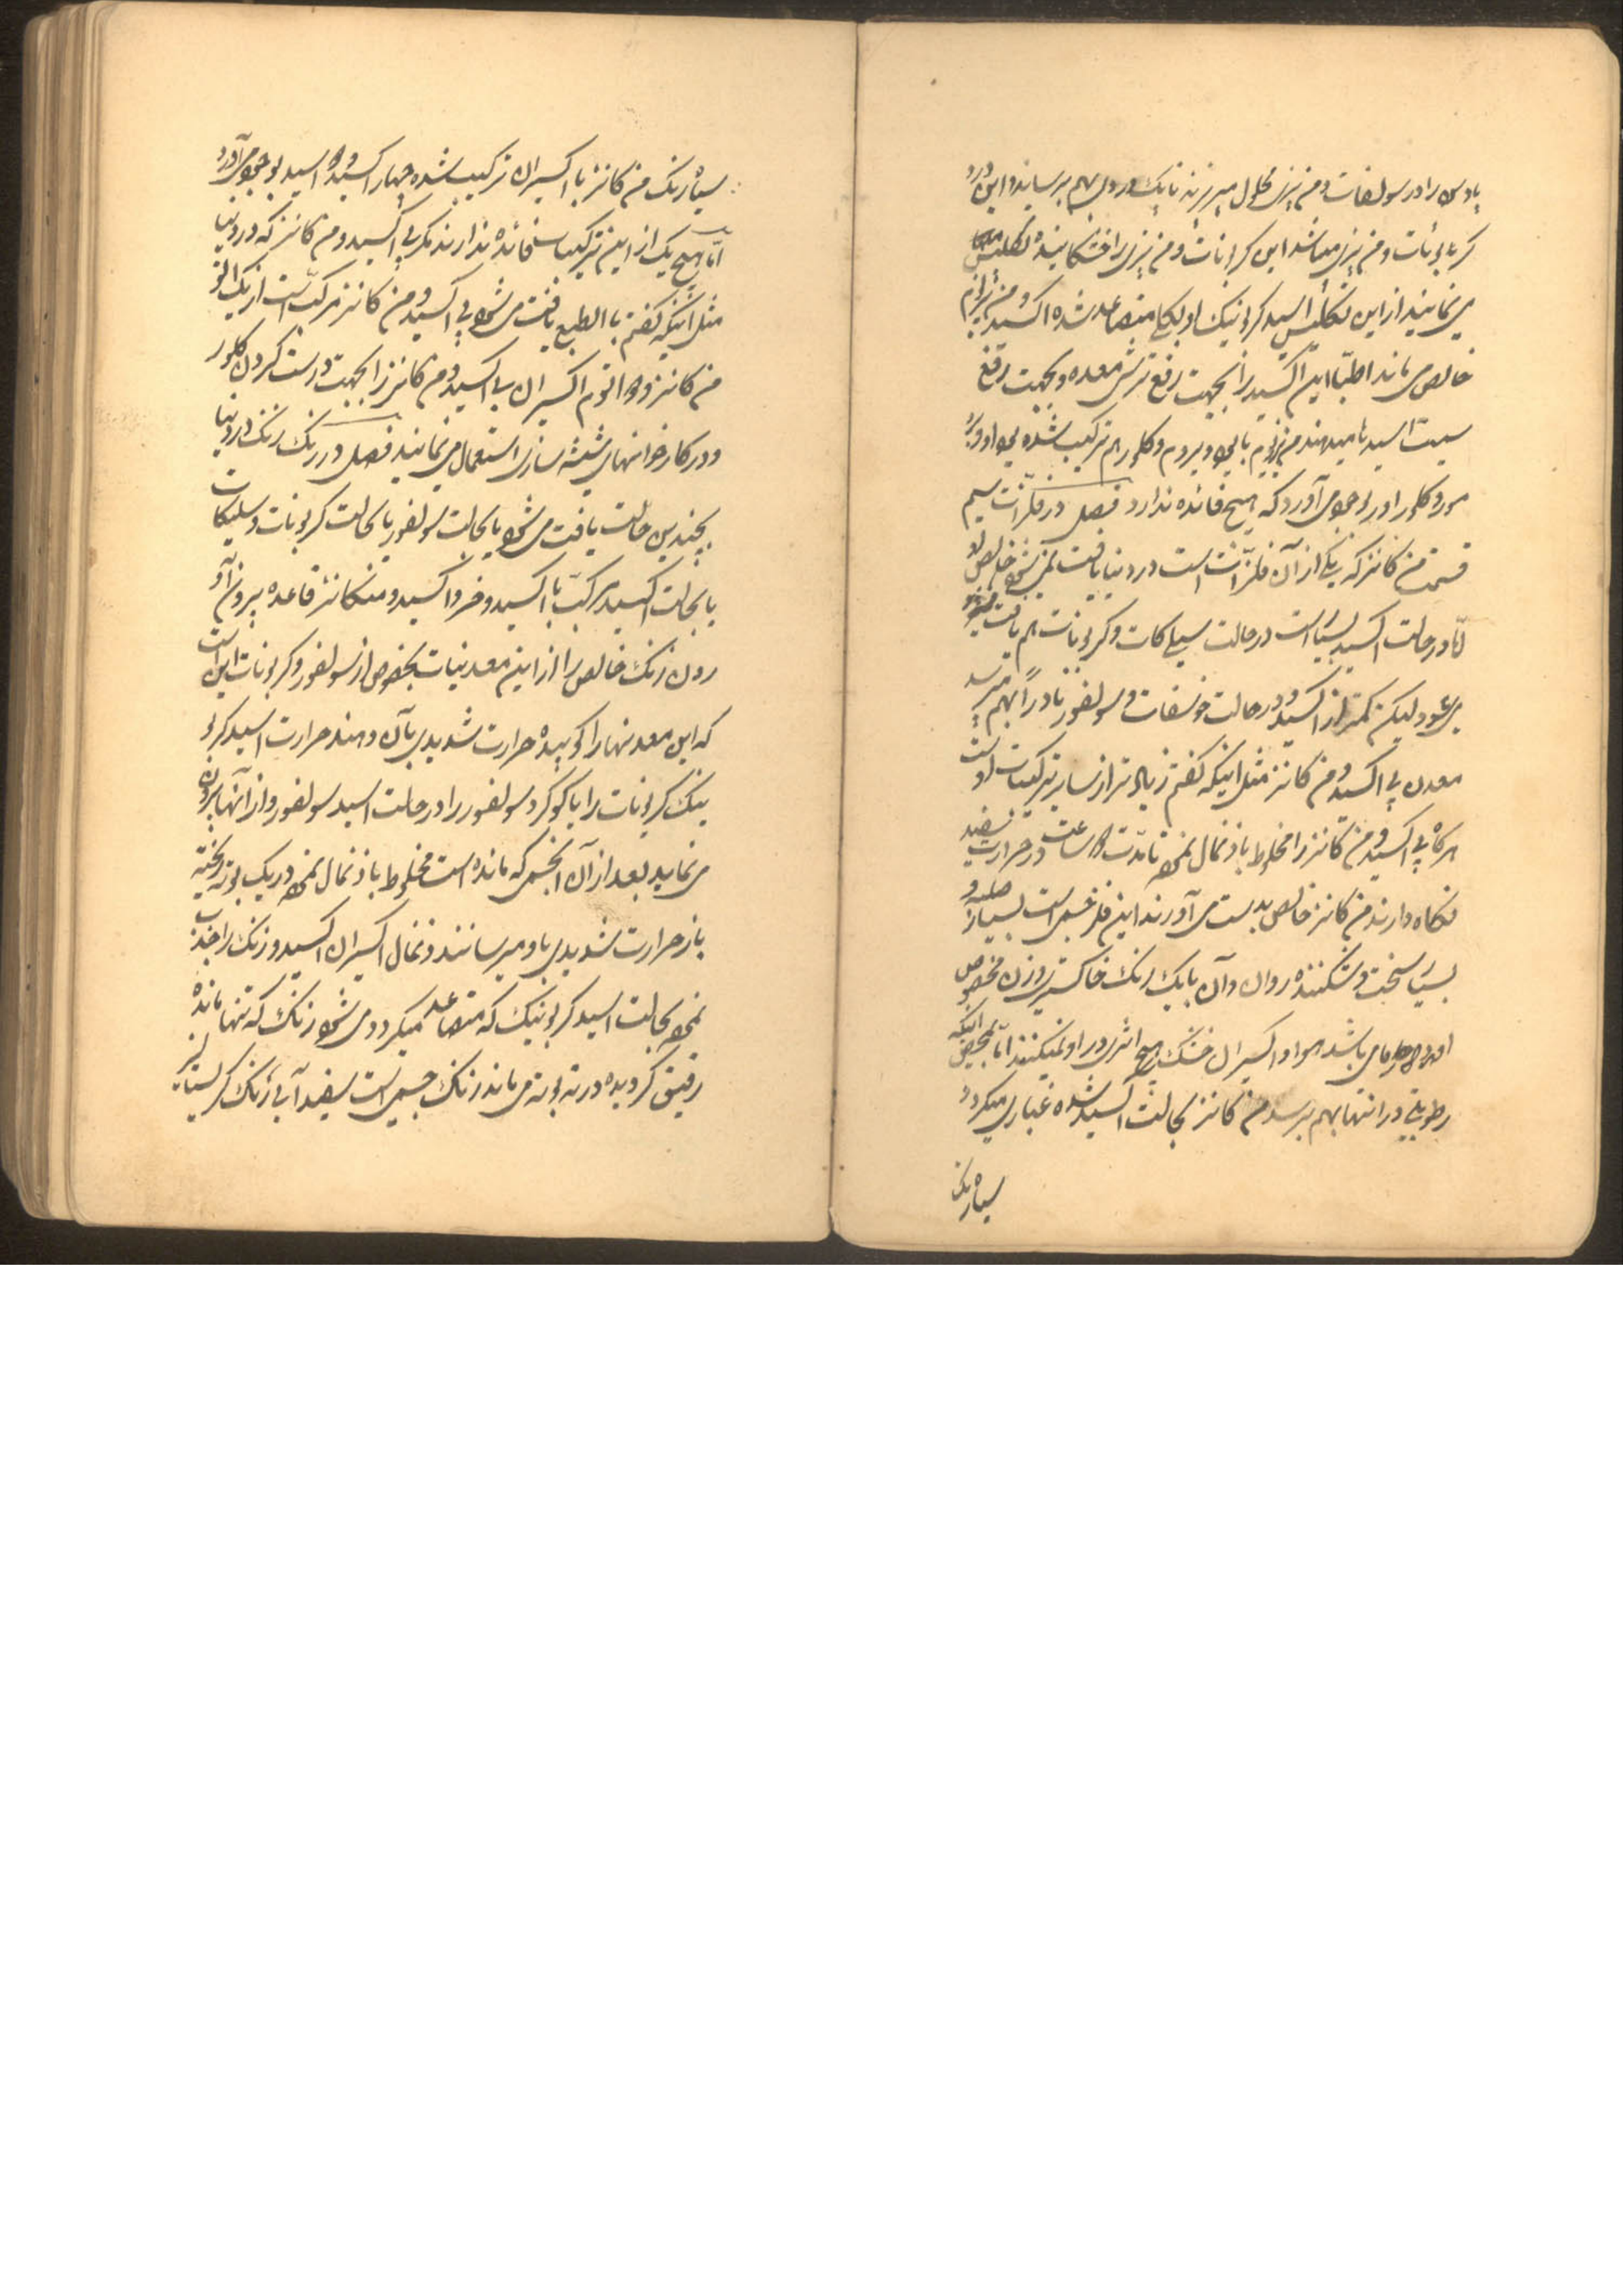 پادوس را در سولفات دو من یزی محلول میریزند تا یک دردی بهم برساند و این درد
کربونات دو من یزی میباشد این کربونات دو من یزی را خشکانیده تکلیس
می نمایند از این تکلیس اسید کربونیک او بالکلی متصاعد شده اکسید دو من یزیوم
خالص می ماند اطبّا این اکسید را بجهت رفع ترشی معده و بجهت رفع
سمیت اسیدها میدهند من یزیوم با یود و بروم و کلور هم ترکیب شده یودور و برو
مور و کلورور بوجود می آورد که هیچ فائده ندارد فصل در فلزّات سیم
قسمت من کانز که یکی از آن فلزّات است در دنیا یافت نمی شود خالص
امّا در حالت اکسید بسیار است در حالت سیلیکات و کربونات هم یافت
می شود لیکن کمتر از اکسید و در حالت فوسفات و سولفور نادراً بهم میرسد
معدن پی اکسید دو من کانز مثل اینکه گفتم زیاد تر از سایر ترکیبات اوست
هرگاه پی اکسید دو من کانز را مخلوط با ذغال نموده تا مدّت ساعت در حرارت سفید
نگاه دارند من کانز خالص بدست می آورند این فلز جسمی است بسیار صلب و
بسیار سخت و شکننده روان و آن با یک رنگ خاکستری وزن مخصوص
او می باشد هوا و اکسیژان خشک هیچ اثری در او نمیکنند امّا بمحض اینکه
رطوبتی در انتها بهم برسد من کانز بحالت اکسید شده غباری میگردد
سیاه رنگ
سیاه رنگ من کانز با اکسیژان ترکیب شده چهار اکسید و اسید بوجود می آورد
امّا هیچ یک از این ترکیبات فائده ندارند مگر پی اکسید دو من کانز که در دنیا
مثل اینکه گفتم با الطبع یافت می شود پی اکسید دو من کانز مرکبّ است از یک اتوم
من کانز و دو اتوم اکسیژان پی اکسید دو من کانز را بجهت درست کردن کلور
و در کارخوانهای شیشه سازی استعمال می نمایند فصل در زنک زنک در دنیا
بچندین حالت یافت می شود یا بحالت سولفور یا بحالت کربونات و سلیکات
یا بحالت اکسید مرکبّ با اکسید دو فر و اکسید دو منکانز قاعده بیرون آو
ردن زنک خالص را از این معدنیات بخصوص از سولفور و کربونات این است
که این معدنها را کوبیده حرارت شدیدی بآن دهند حرارت اسید کربو
نیک کربونات را با گوگرد سولفور را در حالت اسید سولفور و از آنها بیرون
می نماید بعد از آن آنجسمی که مانده است مخلوط با ذغال نموده در یک بوته ریخته
باز حرارت شدیدی باو میرسانند ذغال اکسیژان اکسید دو زنک را جذب
نموده بحالت اسید کربونیک که متصاعد میگردد می شود زنک که تنها مانده
رقیق گردیده در ته بوته می ماند زنک جسمی است سفید آبی رنگ کریستالیز